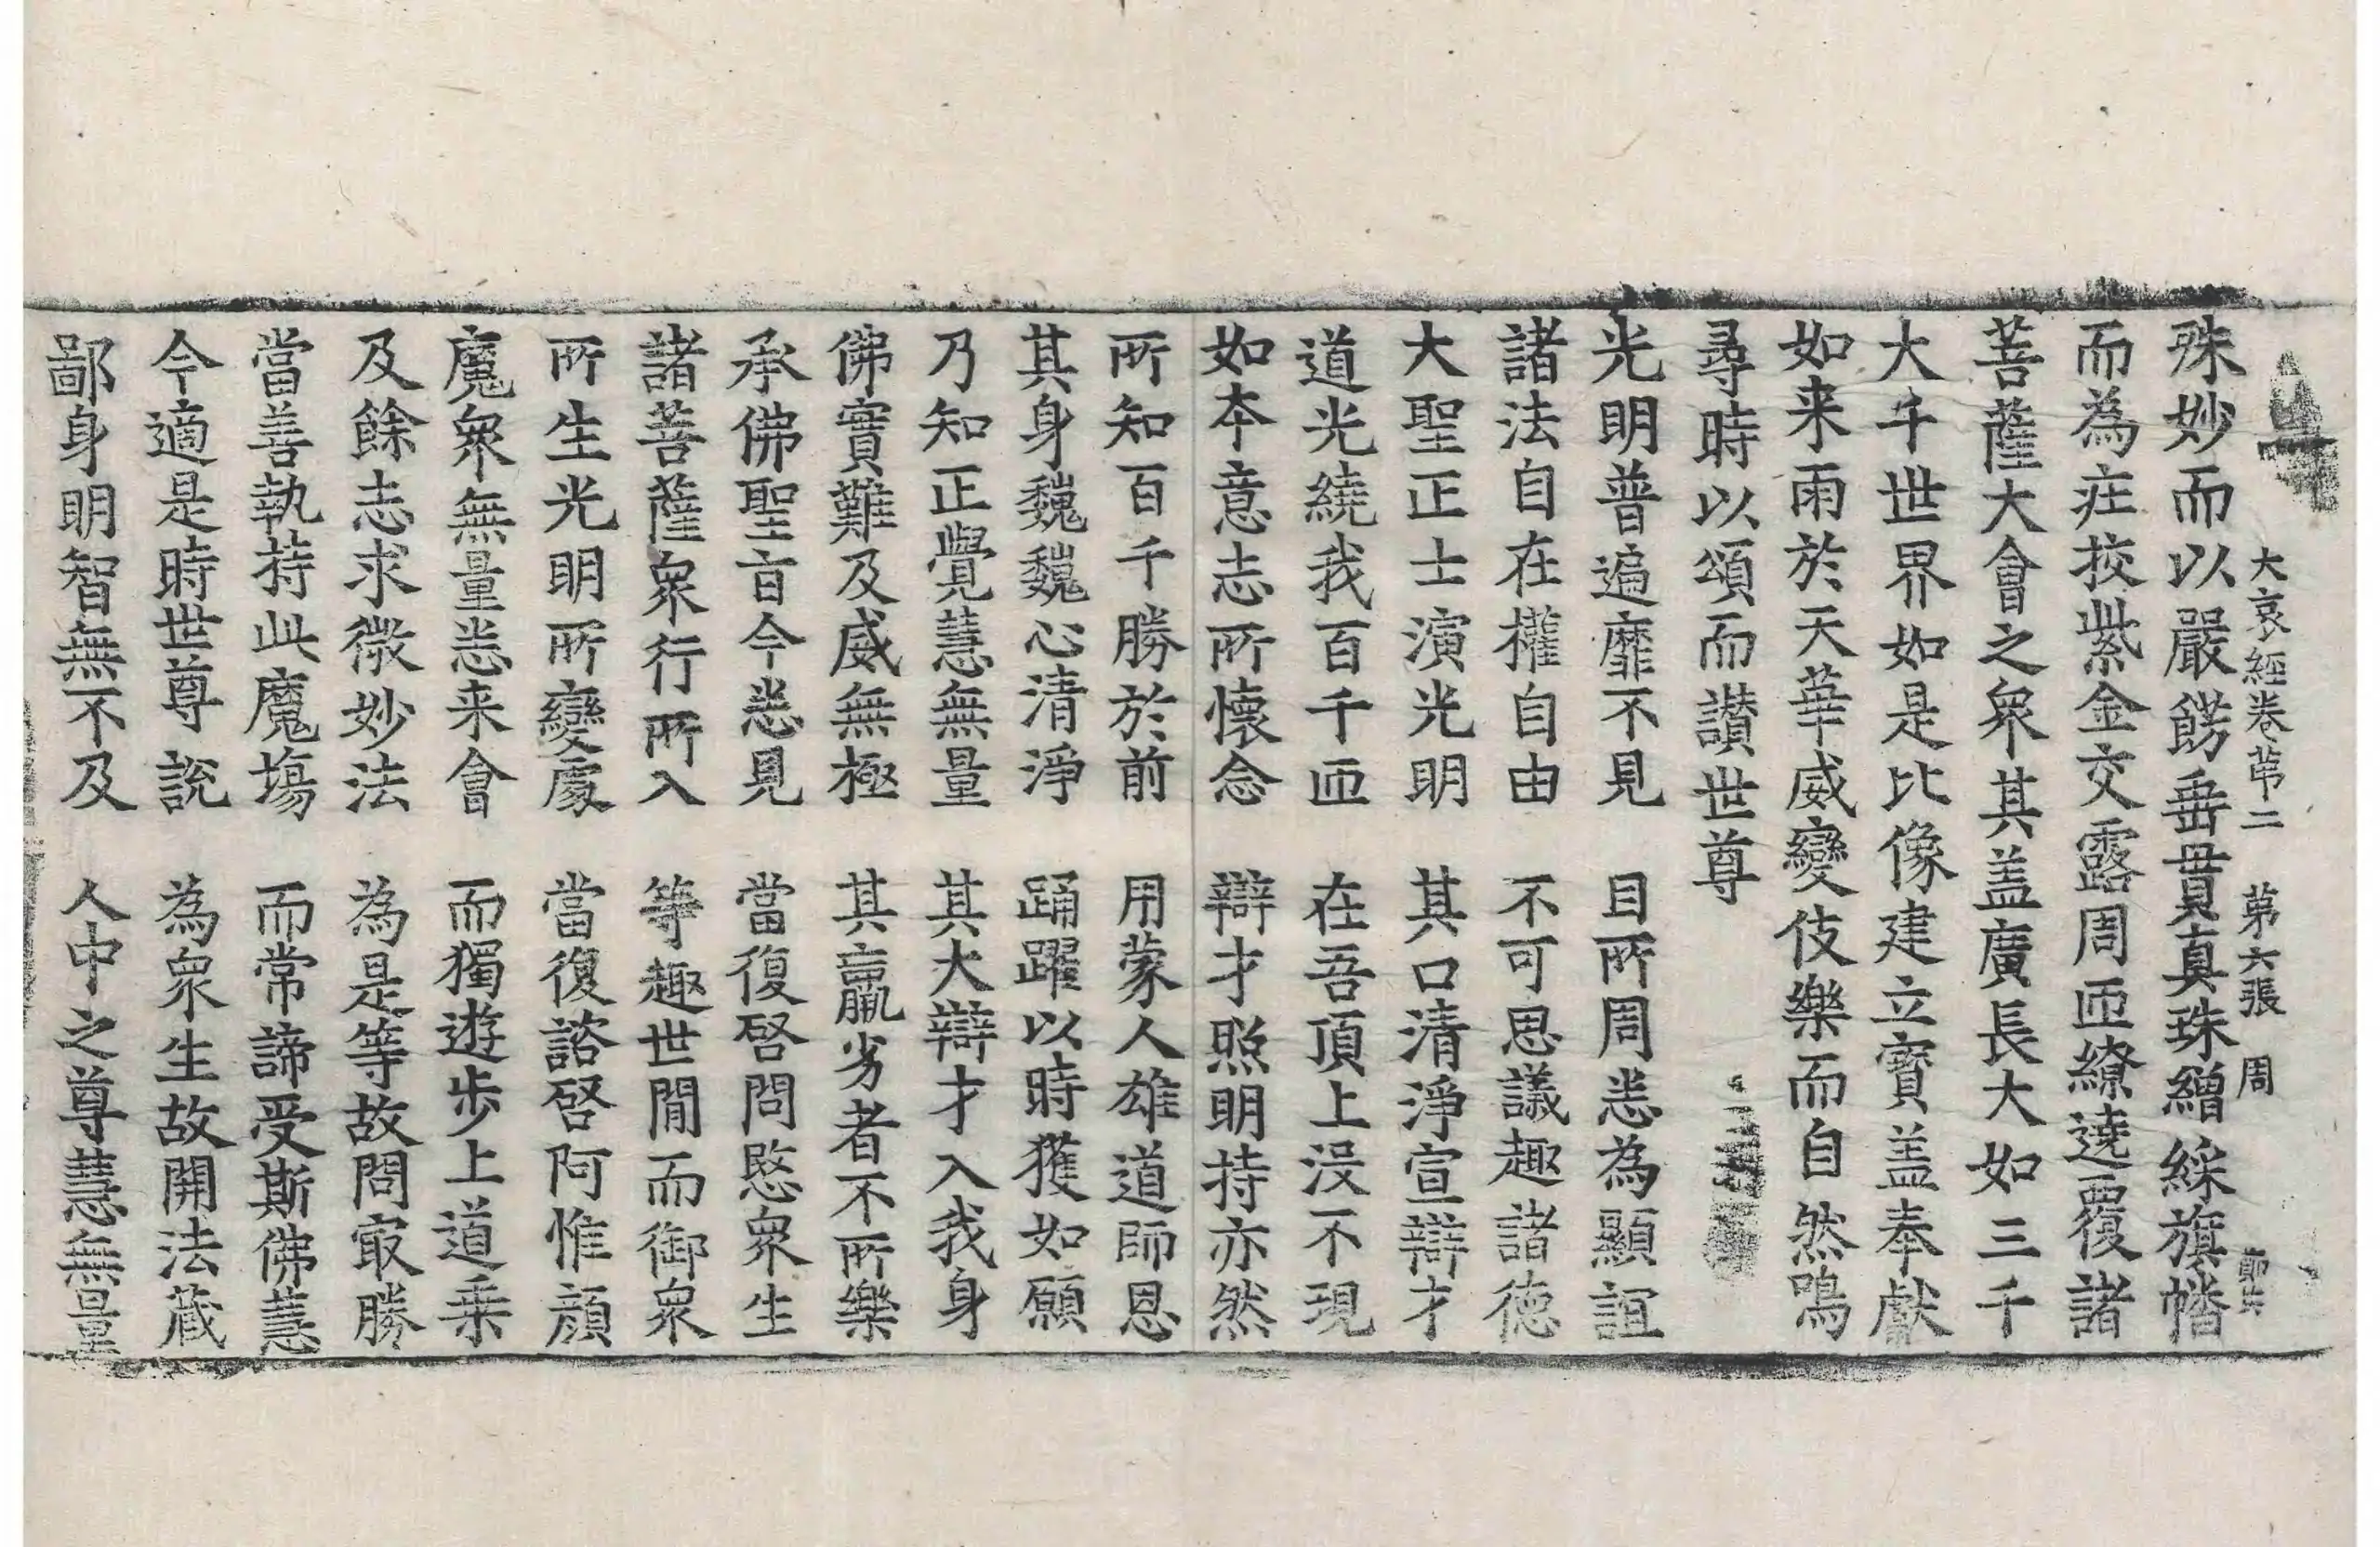 大哀經卷苐二　第六張　周
殊妙而以嚴餝垂貫真珠繒綵旗幡
而為庄挍紫金交露周匝繚遶覆諸
菩薩大會之衆其盖廣長大如三千
大千世界如是比像建立寳盖奉獻
如来雨於天華威變伎樂而自然鳴
尋時以頌而讃世尊
光明普遍靡不見　目所周悉為顯誼
諸法自在權自由　不可思議趣諸徳
大聖正士演光明　其口清淨宣辯才
道光繞我百千匝　在吾頂上没不現
如本意志所懷念　辯才照明持亦然
所知百千勝於前　用蒙人雄道師恩
其身巍巍心清淨　踊躍以時獲如願
乃知正覺慧無量　其大辯才入我身
佛實難及威無極　其羸劣者不所樂
承佛聖旨今悉見　當復啓問愍衆生
諸菩薩衆行所入　等趣世閒而御衆
所生光明所變處　當復諮啓阿惟顔
魔衆無量悉来會　而獨遊步上道乗
及餘志求微妙法　為是等故問㝡勝
當善執持此魔塲　而常諦受斯佛慧
今適是時世尊說　為衆生故開法蔵
鄙身明智無不及　人中之尊慧無量